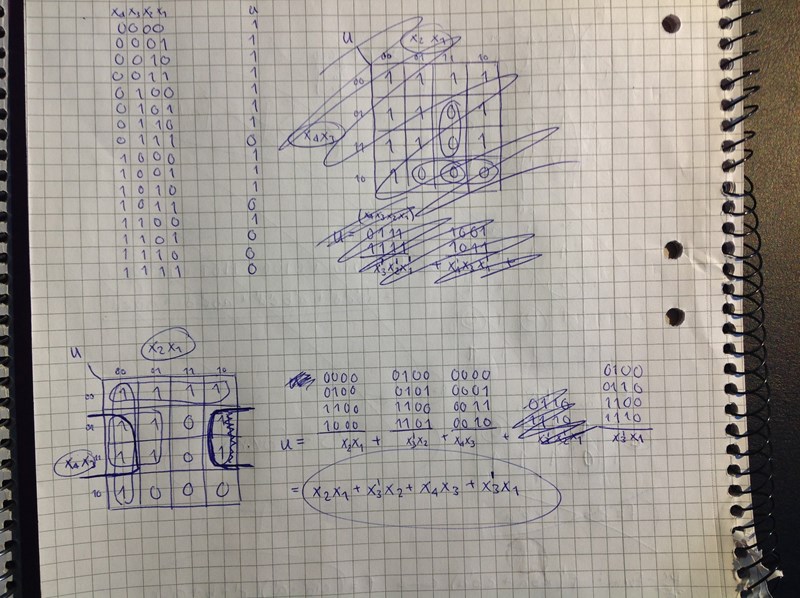 x₄ x₃ x₂ x₁ u
0000 1
0001 1
0010 1
0011 1
0100 1
0101 1
0110 1
0111 0
1000 1
1001 1
1010 1
1011 0
1100 1
1101 0
1110 0
1111 0
u x₂ x₁
00 01 11 10
00 1 1 1 1
01 1 1 0 1
x₄x₃ 11 1 1 0 1
10 1 0 0 0
(x₄x₃x₂x₁)
u = 0111 1001
1111 1011
x₃'x₂'x₁' + x₄'x₂x₁' +
u x₂x₁
00 01 11 10
00 1 1 1 1
01 1 1 0 1
x₄x₃ 11 1 1 0 1
10 1 0 0 0
0000 0100 0000 0100
0100 0101 0001 0110
1100 1100 0011 0110 1100
1000 1101 0010 1110 1110
u = x₂x₁ + x₃'x₂ + x₄x₃ + x₃'x₁
= x₂x₁ + x₃'x₂ + x₄x₃ + x₃'x₁